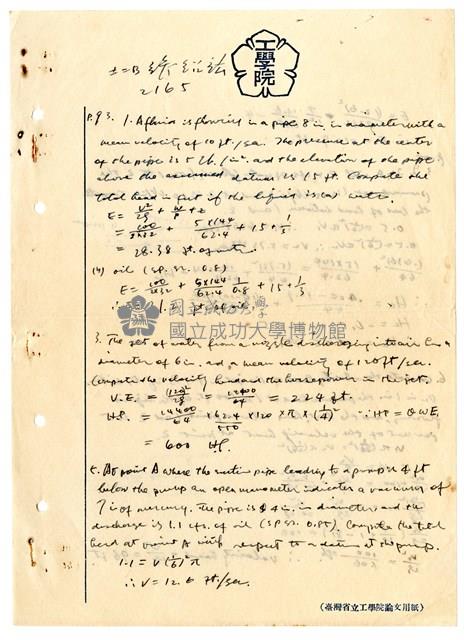 工學院
2165
P.93. 1. A fluid is flowing in a pipe 8 in. in diameter with a
mean velocity of 10 ft/sec. The pressure at the center
of the pipe is 5 lb./in². and the elevation of the pipe
above the assumed datum is 15 ft. Compute the
total head in feet if the liquid is (a) water.
E = V²/2g + W/P + Z
= 100/2×32 + 5×144/62.4 + 15 + 1/3
= 28.38 ft. of water
(b) oil (sp. gr. 0.8)
E = 100/2×32 + 5×144/62.4 1/0.8 + 15 + 1/3
國立成功大學
國立成功大學博物館
3. The jet of water from a nozzle discharging into air has a
diameter of 6 in. and a mean velocity of 120 ft/sec.
Compute the velocity head and the horsepower in the jet.
V.E. = (120)²/2g = 14400/64 = 224 ft.
H.P. = 14400/64 × 62.4/550 × 120 × π × (1/4)² ∵ HP = QWE
= 600 HP.
5. At point A where the suction pipe leading to a pump is 4 ft
below the pump an open manometer indicates a vacuum of
7 in of mercury. The pipe is 4 in. in diameter and the
discharge is 1.1 cfs. of oil (sp. gr. 0.85). Compute the total
head at point A with respect to a datum at the pump.
1.1 = V(1/6)²π
∴ V = 12.6 ft/sec.
(臺灣省立工學院論文用紙)